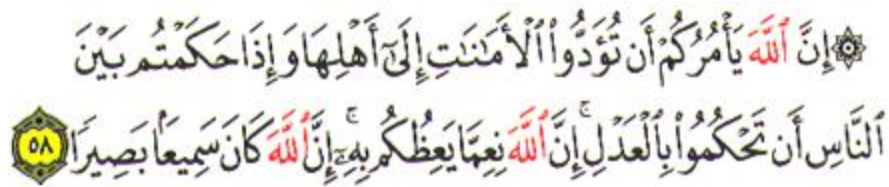 ۞ إِنَّ ٱللَّهَ يَأْمُرُكُمْ أَن تُؤَدُّوا۟ ٱلْأَمَـٰنَـٰتِ إِلَىٰٓ أَهْلِهَا وَإِذَا حَكَمْتُم بَيْنَ
ٱلنَّاسِ أَن تَحْكُمُوا۟ بِٱلْعَدْلِ ۚ إِنَّ ٱللَّهَ نِعِمَّا يَعِظُكُم بِهِۦٓ ۚ إِنَّ ٱللَّهَ كَانَ سَمِيعًۢا بَصِيرًا ٥٨